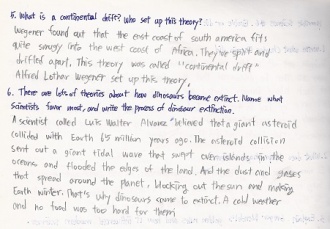 5. What is a continental drift? Who set up this theory?
Wegener found out that the east coast of south america fits
quite snugly into the west coast of Africa. They've split and
drifted apart. This theory was called "continental drift"
Alfred Lothar Wegener set up this theory.
6. There are lots of theories about how dinosaurs became extinct. Name what
scientists favor most, and write the process of dinosaur extinction.
A scientist called Luis Walter Alvarez believed that a giant asteroid
collided with Earth 65 million years ago. The asteroid collision
sent out a giant tidal wave that swept over islands in the
oceans and flooded the edges of the land. And the dust and gases
that spread around the planet, blocking out the sun and making
Earth winter. That's why dinosaurs came to extinct. A cold weather
and no food was too hard for them